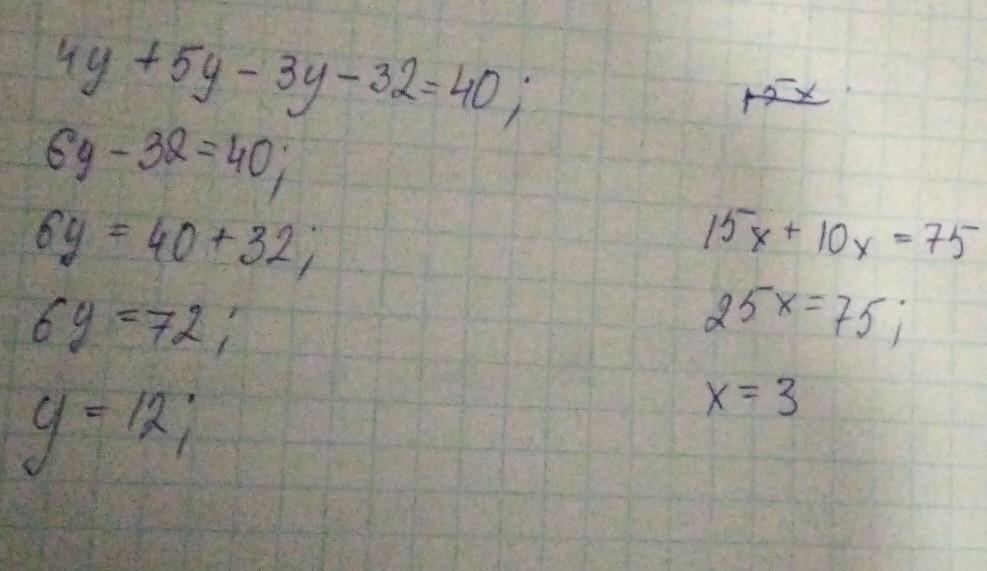 4y + 5y - 3y - 32 = 40;
6y - 32 = 40;
6y = 40 + 32;
6y = 72;
y = 12;
15x
15x + 10x = 75
25x = 75;
x = 3